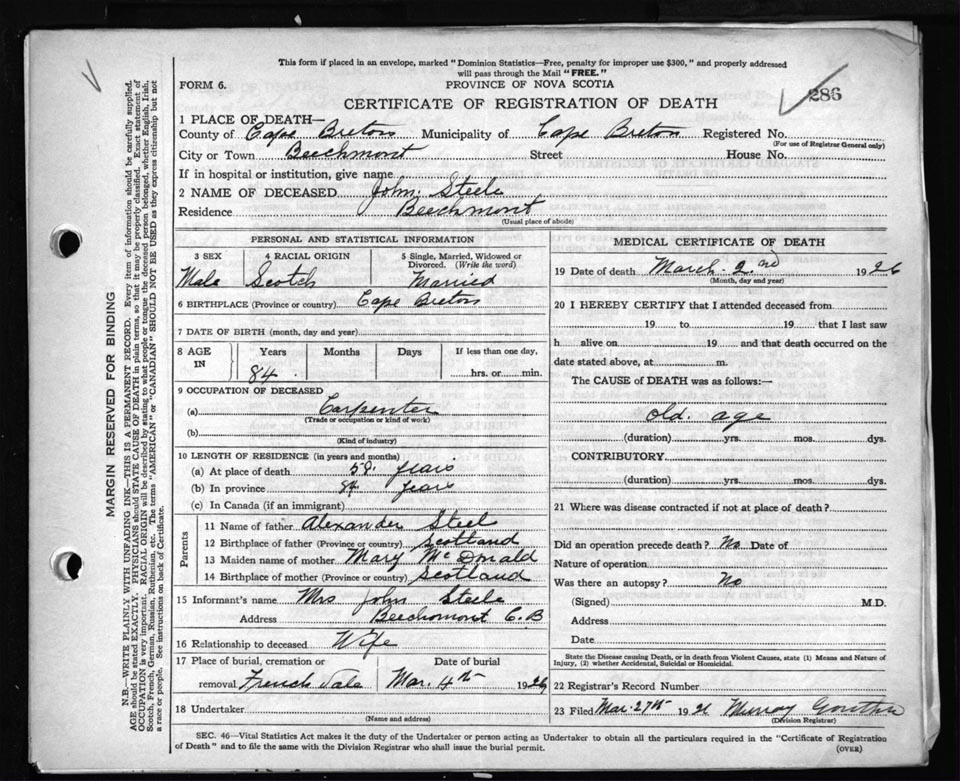 This form if placed in an envelope, marked "Dominion Statistics—Free, penalty for improper use $300," and properly addressed
will pass through the Mail "FREE."
FORM 6.
PROVINCE OF NOVA SCOTIA
286
CERTIFICATE OF REGISTRATION OF DEATH
1 PLACE OF DEATH—
County of Cape Breton Municipality of Cape Breton Registered No.
(For use of Registrar General only)
City or Town Beechmont Street House No.
If in hospital or institution, give name
2 NAME OF DECEASED John Steele
Residence Beechmont
(Usual place of abode)
MARGIN RESERVED FOR BINDING
N.B.—WRITE PLAINLY WITH UNFADING INK—THIS IS A PERMANENT RECORD. Every item of information should be carefully supplied.
AGE should be stated EXACTLY. PHYSICIANS should STATE CAUSE OF DEATH in plain terms, so that it may be properly classified. Exact statement of
OCCUPATION is very important. RACIAL ORIGIN will be described by stating to what people or tongue the deceased person belonged, whether English, Irish,
Scotch, French, German, Russian, Ruthenian, etc. The terms "AMERICAN" or "CANADIAN" SHOULD NOT BE USED as they express citizenship but not
a race or people. See instructions on back of Certificate.
PERSONAL AND STATISTICAL INFORMATION
3 SEX
Male
4 RACIAL ORIGIN
Scotch
5 Single, Married, Widowed or
Divorced. (Write the word)
Married
6 BIRTHPLACE (Province or country) Cape Breton
7 DATE OF BIRTH (month, day and year)
8 AGE
IN
Years Months Days If less than one day,
84 hrs. or min.
9 OCCUPATION OF DECEASED
(a) Carpenter
(Trade or occupation or kind of work)
(b)
(Kind of industry)
10 LENGTH OF RESIDENCE (in years and months)
(a) At place of death years
(b) In province 84 years
(c) In Canada (if an immigrant)
Parents
11 Name of father Alexander Steel
12 Birthplace of father (Province or country) Scotland
13 Maiden name of mother Mary McDonald
14 Birthplace of mother (Province or country) Scotland
15 Informant's name Mrs John Steele
Address Beechmont C.B
16 Relationship to deceased Wife
17 Place of burial, cremation or Date of burial
removal French Vale Mar. 4th 1926
18 Undertaker
(Name and address)
MEDICAL CERTIFICATE OF DEATH
19 Date of death March 2nd 1926
(Month, day and year)
20 I HEREBY CERTIFY that I attended deceased from
19 to 19 that I last saw
h alive on 19 and that death occurred on the
date stated above, at m.
The CAUSE of DEATH was as follows:—
old age
(duration) yrs. mos. dys.
CONTRIBUTORY
(duration) yrs. mos. dys.
21 Where was disease contracted if not at place of death?
Did an operation precede death? No Date of
Nature of operation
Was there an autopsy? No
(Signed) M.D.
Address
Date
State the Disease causing Death, or in death from Violent Causes, state (1) Means and Nature of
Injury, (2) whether Accidental, Suicidal or Homicidal.
22 Registrar's Record Number
23 Filed Mar. 27th 192 Murray
(Division Registrar)
SEC. 46—Vital Statistics Act makes it the duty of the Undertaker or person acting as Undertaker to obtain all the particulars required in the "Certificate of Registration
of Death" and to file the same with the Division Registrar who shall issue the burial permit.
(OVER)